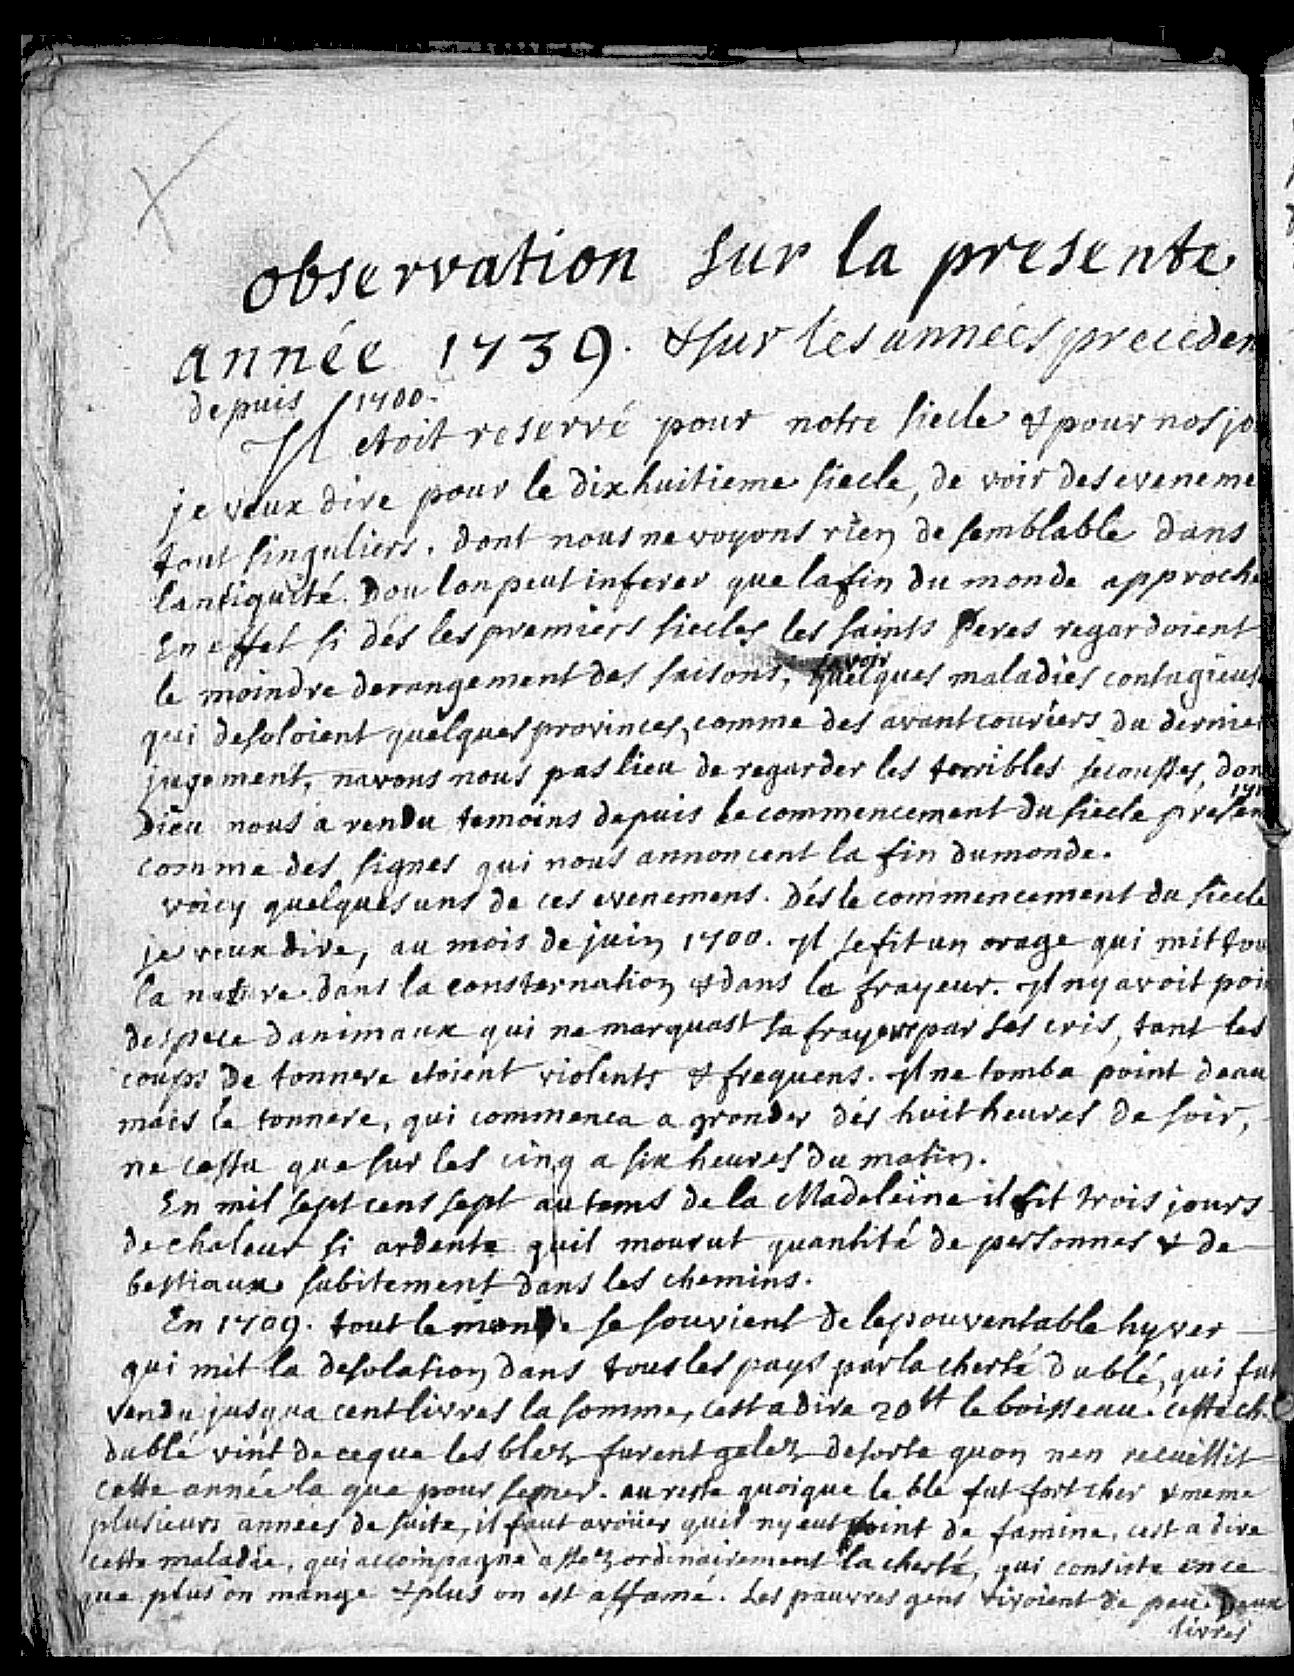 Observation sur la presente
année 1739. & sur les années preceden
depuis 1700.
Il etoit reservé pour notre siecle & pour nos jo
je veux dire pour le dixhuitieme siecle, de voir des eveneme
tout singuliers. dont nous ne voyons rien de semblable dans
lantiquité. Dou lon peut inferer que la fin du monde approche
En effet si dés les premiers siecles les saints Peres regardoient
le moindre derangement des saisons, quelques maladies contagieus
qui desoloient quelques provinces, comme des avantcouriers du dernier
jugement, navons nous pas lieu de regarder les terribles secousses, dont
Dieu nous a rendu temoins depuis le commencement du siecle presen
comme des signes qui nous annoncent la fin du monde.
voicy quelques uns de ces evenemens. Dés le commencement du siecle
je veux dire, au mois de juin 1700. Il se fit un orage qui mit tou
la nature dans la consternation & dans la frayeur. Il ny avoit poi
despece danimaux qui ne marquast sa frayeur par ses cris, tant les
coups de tonnere etoient violents & frequens. Il ne tomba point deau
mais le tonnere, qui commenca a gronder dés huit heures de soir,
ne cessa que sur les cinq a six heures du matin.
En mil sept cens sept au tems de la Madeleine il fit trois jours
de chaleur si ardente quil mourut quantité de personnes & de
bestiaux subitement dans les chemins.
En 1709. tout le monde se souvient de lepouventable hyver
qui mit la desolation dans tous les pays par la cherté du blé, qui fut
vendu jusqua cent livres la somme, cest a dire 20tt le boisseau. cette ch.
du blé vint de ceque les blez furent gelez desorte quon nen recuëillit
cette année la que pour semer. au reste quoique le blé fut fort cher & meme
plusieurs années de suite, il faut avoüer quil ny eut point de famine, cest a dire
cette maladie, qui accompagne assez ordinairement la cherté, qui consiste en ce
que plus on mange & plus on est affamé. Les pauvres gens vivoient de peu. Deux
livres